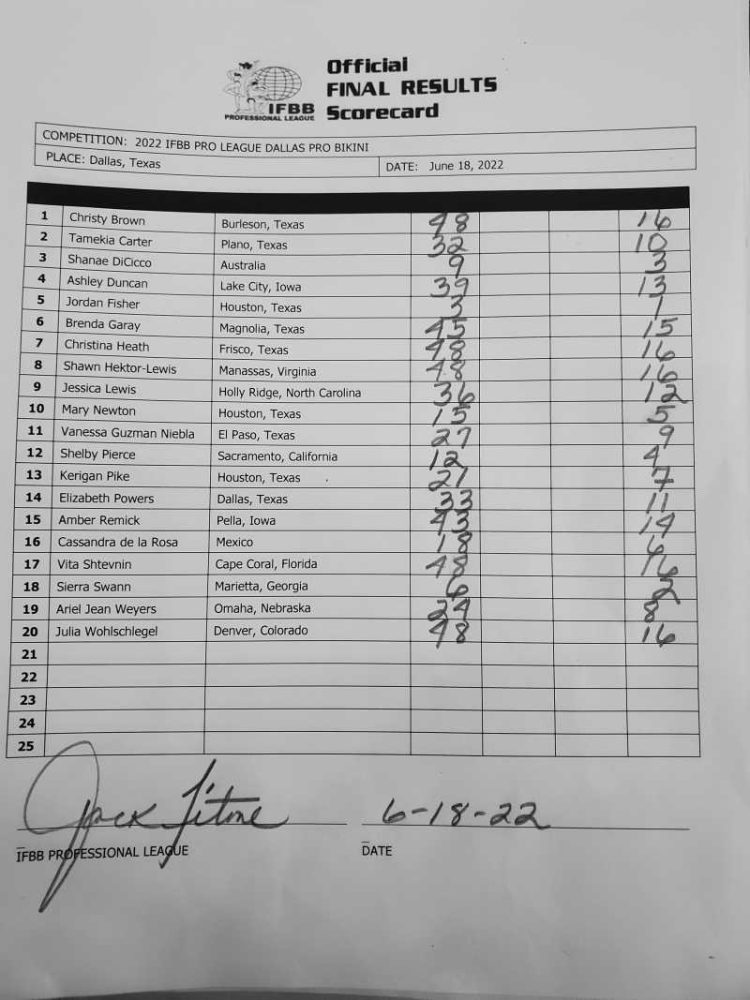 Official
FINAL RESULTS
IFBB Scorecard
PROFESSIONAL LEAGUE
COMPETITION: 2022 IFBB PRO LEAGUE DALLAS PRO BIKINI
PLACE: Dallas, Texas DATE: June 18, 2022
1 Christy Brown Burleson, Texas 48 16
2 Tamekia Carter Plano, Texas 32 10
3 Shanae DiCicco Australia 9 3
4 Ashley Duncan Lake City, Iowa 39 13
5 Jordan Fisher Houston, Texas 3 1
6 Brenda Garay Magnolia, Texas 45 15
7 Christina Heath Frisco, Texas 48 16
8 Shawn Hektor-Lewis Manassas, Virginia 48 16
9 Jessica Lewis Holly Ridge, North Carolina 36 12
10 Mary Newton Houston, Texas 15 5
11 Vanessa Guzman Niebla El Paso, Texas 27 9
12 Shelby Pierce Sacramento, California 12 4
13 Kerigan Pike Houston, Texas 21 7
14 Elizabeth Powers Dallas, Texas 33 11
15 Amber Remick Pella, Iowa 43 14
16 Cassandra de la Rosa Mexico 18 6
17 Vita Shtevnin Cape Coral, Florida 48 16
18 Sierra Swann Marietta, Georgia 6 2
19 Ariel Jean Weyers Omaha, Nebraska 24 8
20 Julia Wohlschlegel Denver, Colorado 48 16
21
22
23
24
25
6-18-22
IFBB PROFESSIONAL LEAGUE DATE